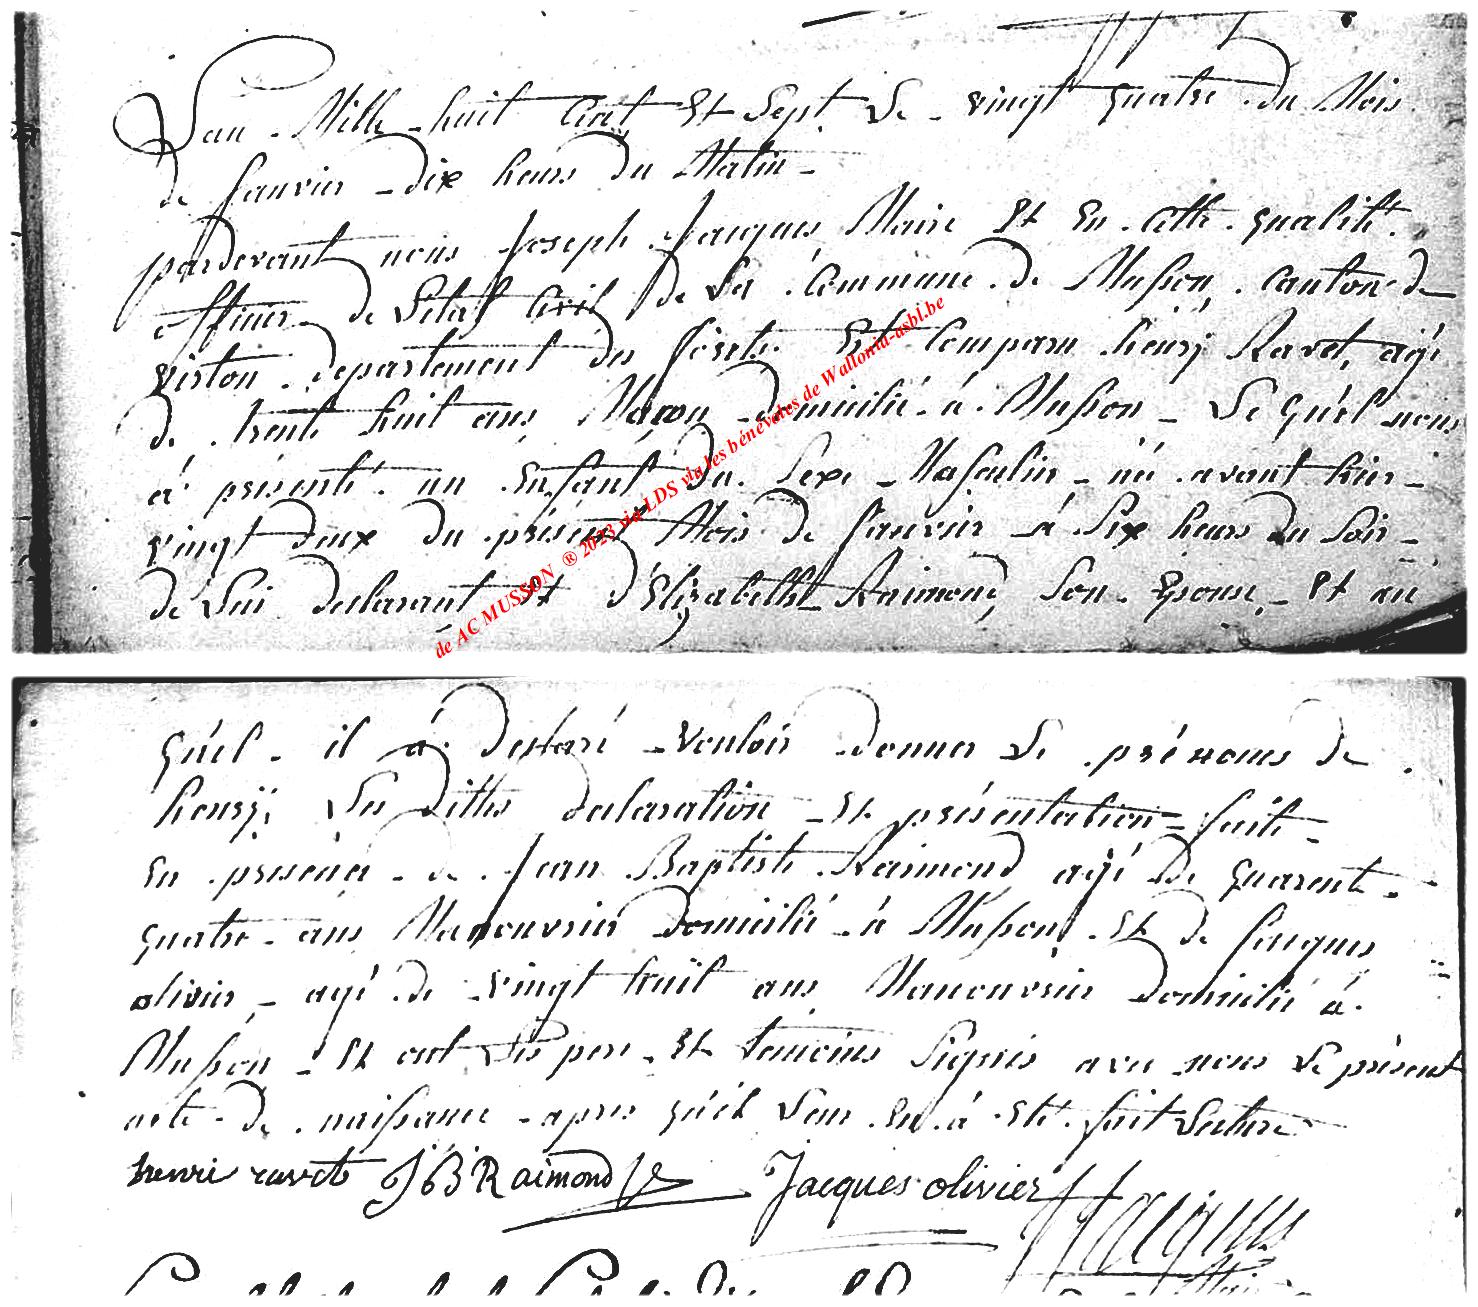 L'an Mille huit Cent Et Sept Le vingt quatre du Mois
de Janvier dix heurs du Matin
pardevant nous Joseph Jacques Maire Et En Cette qualité
officier de L'Etat Civil de La Commune de Musson canton de
virton departement des forêts Est Comparu henrÿ Ravet agé
de trente huit ans Maçon domicilié à Musson Le quel nous
à présenté un Enfant du Sexe Masculin né avant hier
vingt deux du présent Mois de Janvier à Six heurs du Soir
de Lui declarant Et d'Elizabeth Raimond Son Epouse Et au
quel il à déclaré vouloir donner Le prénoms de
henrÿ Les dittes declaration Et présentation faite
En présence de Jean Baptiste Raimond agé de quarente
quatre ans Manouvrier domicilié à Musson Et de Jacques
olivier agé de vingt huit ans Manouvrier domicilié à
Musson Et ont Les pere Et temoins Signés avec nous Le présent
acte de naissance apres qu'il Leur En à Eté fait Lecture
henri ravet JB Raimond Jacques olivier J Jacques
Maire
de AC MUSSON ® 2023 via LDS via les bénévoles de Wallonia-asbl.be